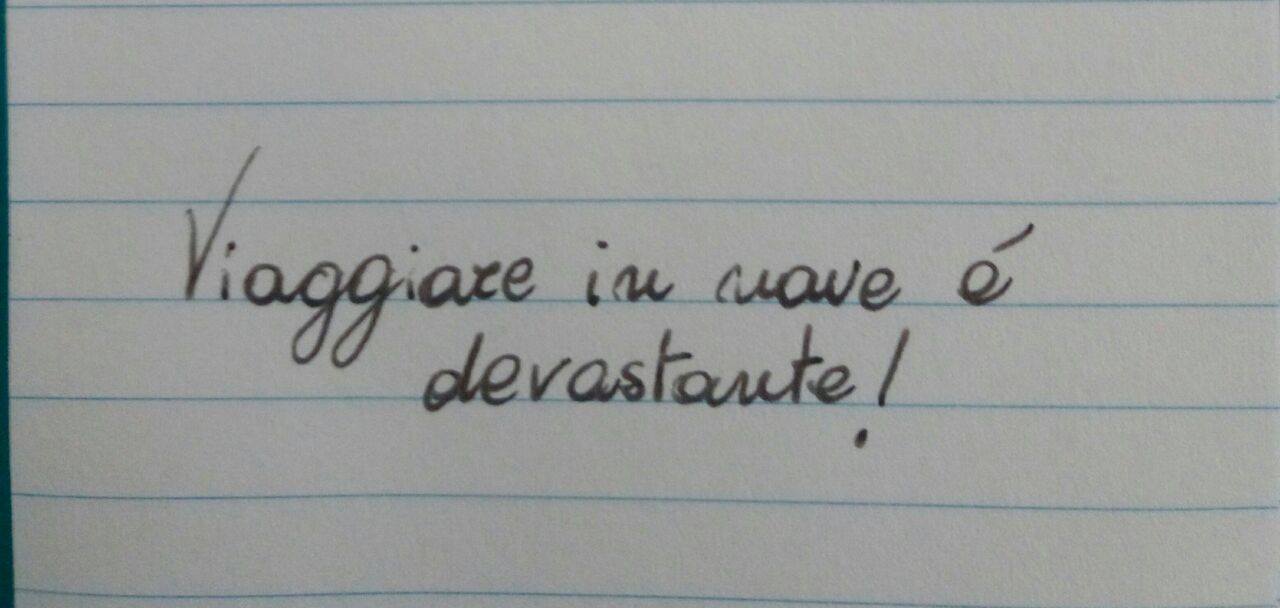 Viaggiare in nave é
devastante!